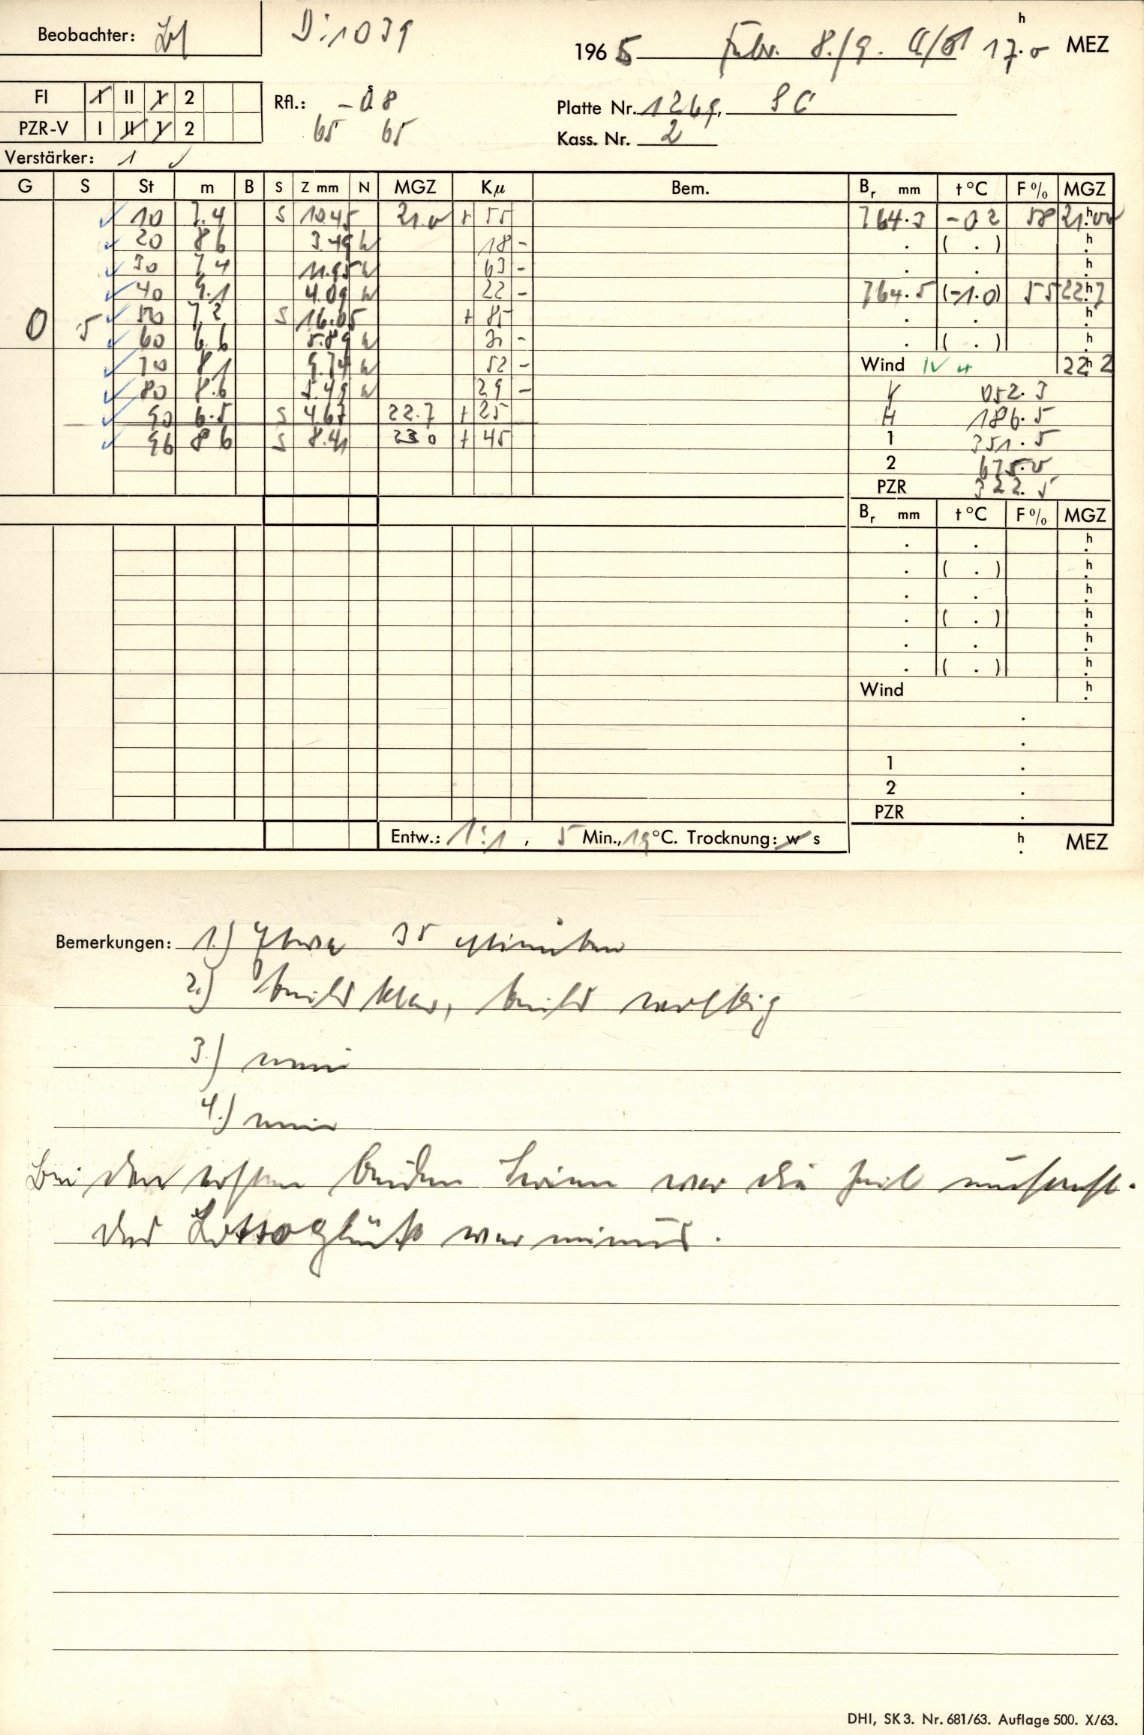 Beobachter:
Di 1039
h
1965 Febr. 8./9. 17.0 MEZ
FI I II 1 2
Rfl.: -0.8
Platte Nr. 1269, SC
PZR-V I II 1 2
65 65
Kass. Nr. 2
Verstärker: 1 ✓
G S St m B S Z mm N MGZ Kμ Bem. Br mm t °C F % MGZ
✓ 10 7.4 S 10.45 21.0 + 55 764.3 -0.2 58 21.h00
✓ 20 8.6 3.49 N 18 - . ( . ) h
✓ 30 7.4 11.95 N 63 - . . h
✓ 40 9.1 4.09 N 22 - 764.5 (-1.0) 55 22.h7
0 5 ✓ 50 7.2 S 16.05 + 85 . . h
✓ 60 6.6 5.89 N 31 - . ( . ) h
✓ 70 8.1 9.74 N 52 - Wind IV 22.h2
✓ 80 8.6 5.49 N 29 - V 052.3
✓ 90 6.5 S 4.67 22.7 + 25 H 186.5
✓ 96 8.6 S 8.41 23.0 + 45 1 351.5
2 675.0
PZR 322.5
Br mm t °C F % MGZ
. . h
. ( . ) h
. . h
. ( . ) h
. . h
. ( . ) h
Wind h
.
.
1 .
2 .
PZR .
Entw.: 1:1 , 5 Min., 19 °C. Trocknung: w s
h
. MEZ
Bemerkungen: 1.) Etwa 35 Minuten
2.) bald klar, bald wolkig
3.) nein
4.) nein
Bei den ersten beiden Serien war die Zeit
das Lottoglück war minus.
DHI, SK 3. Nr. 681/63. Auflage 500. X/63.